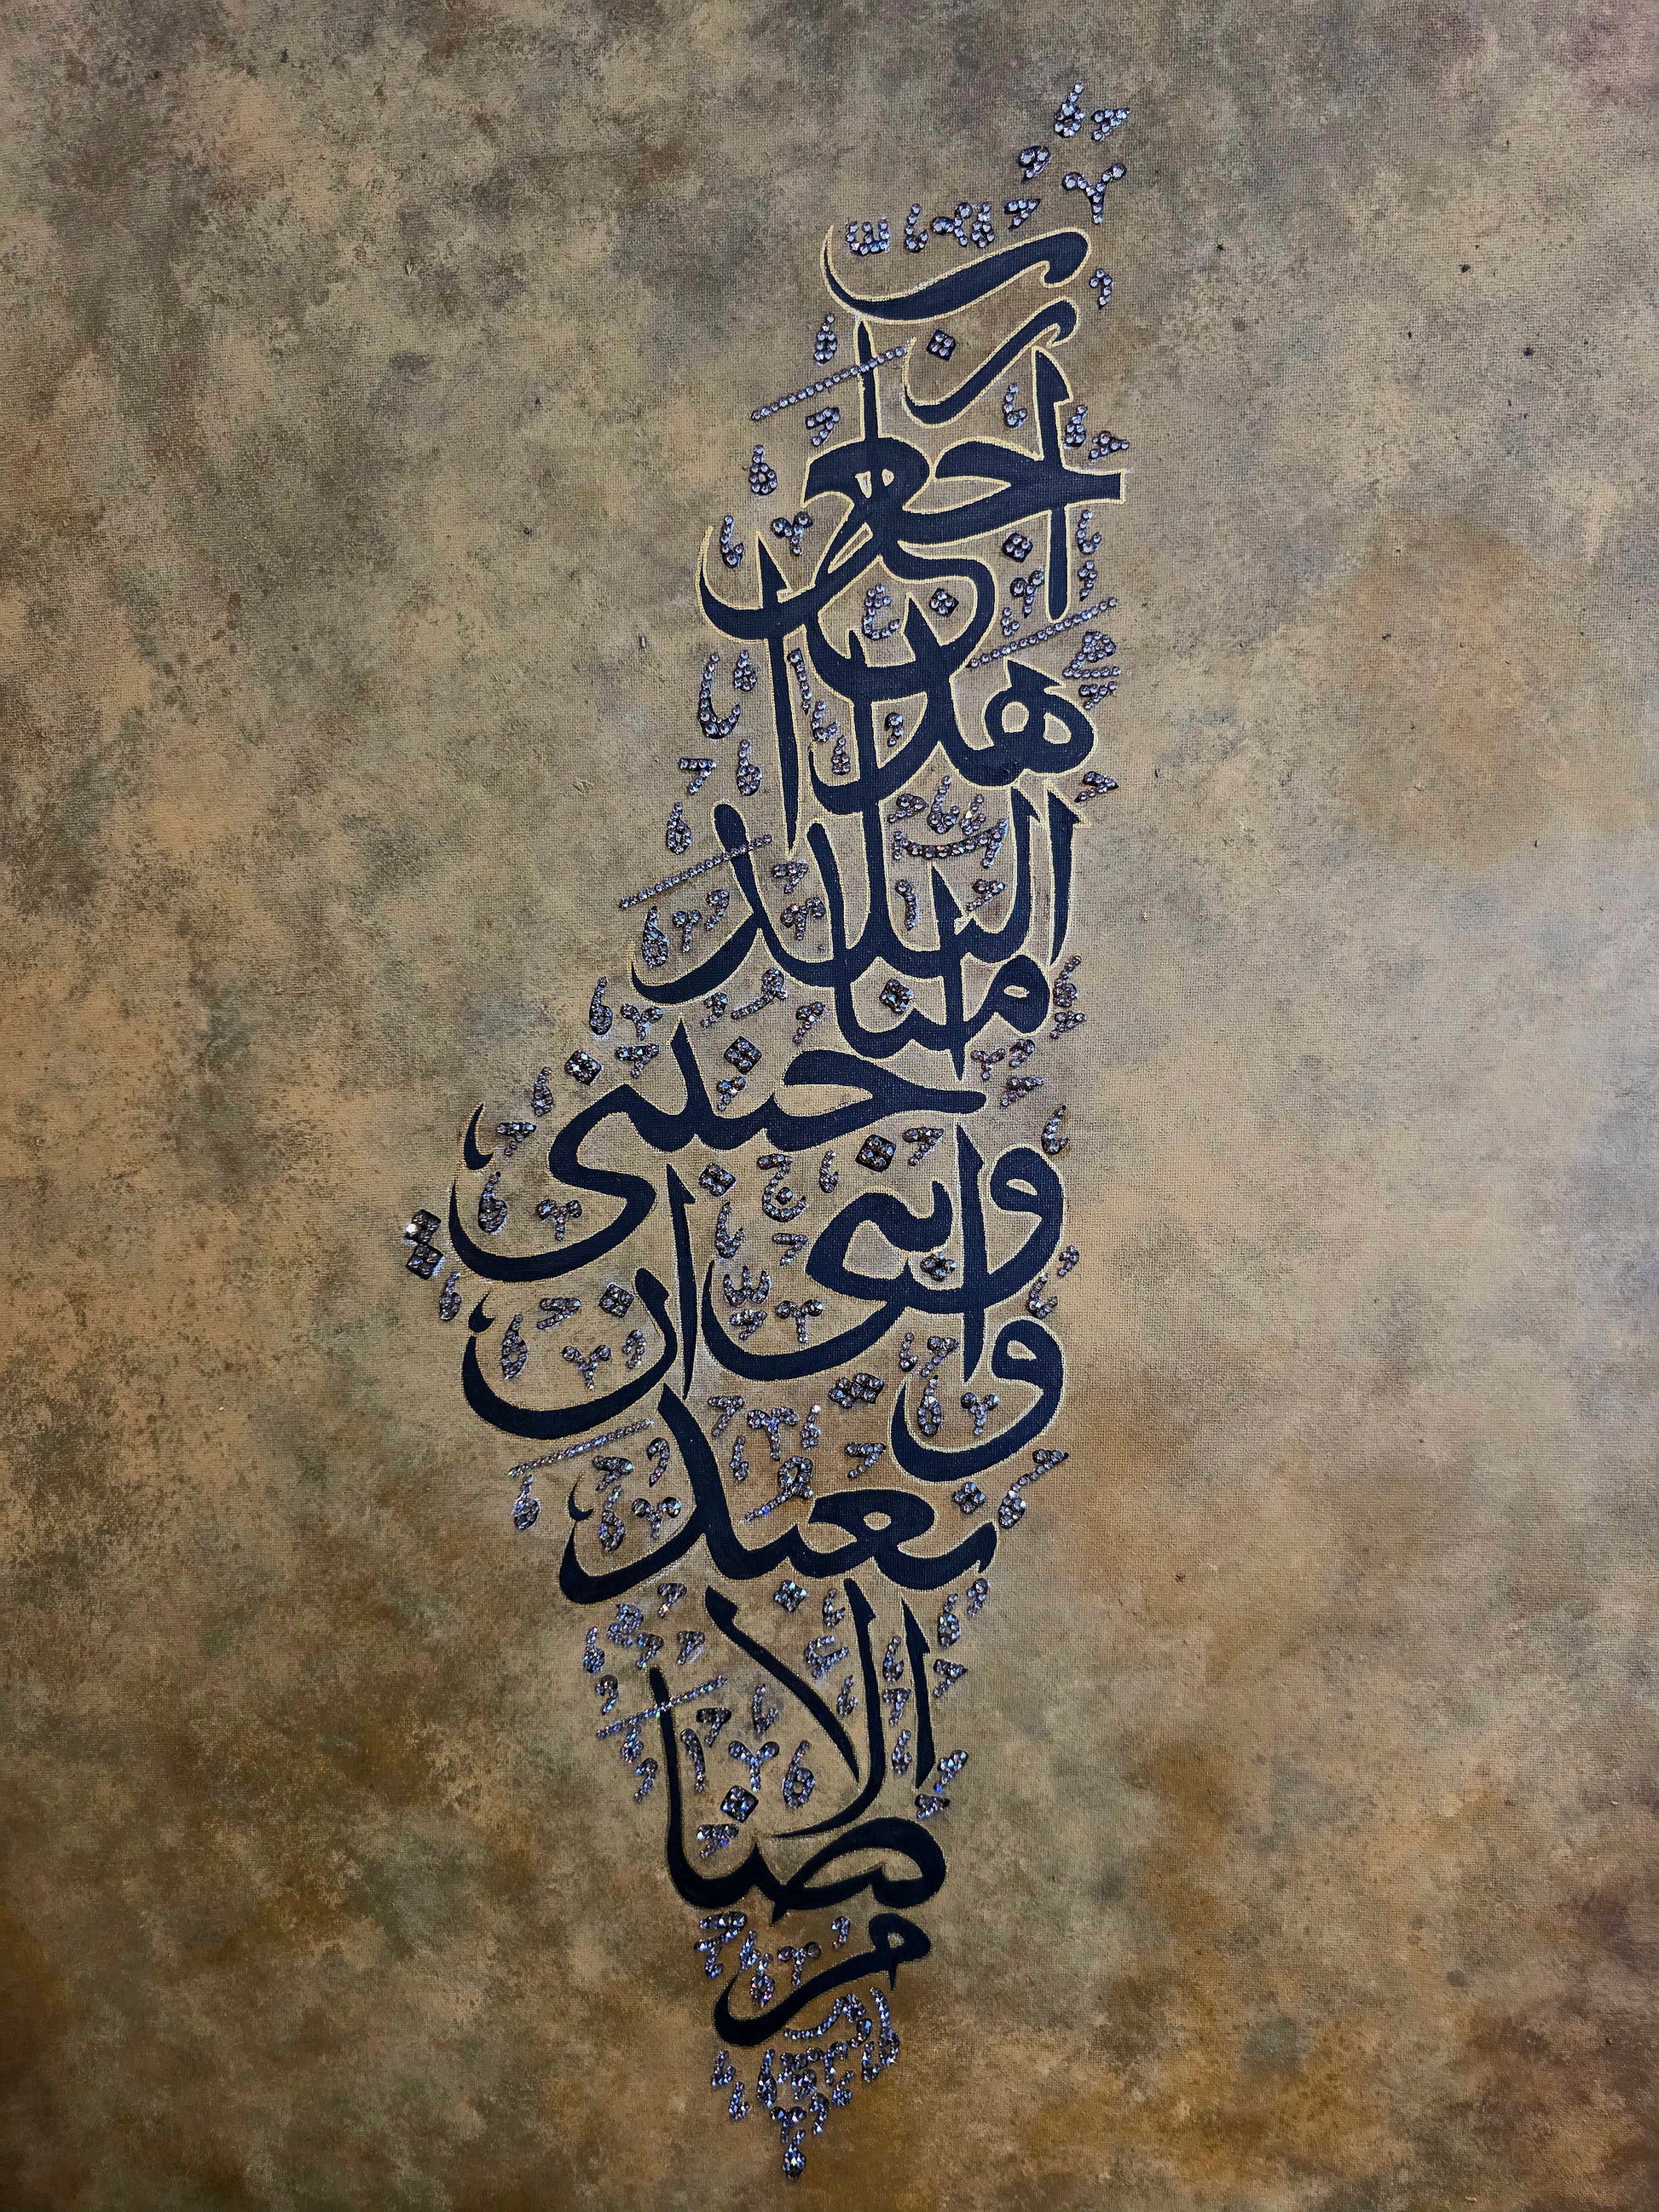 رب
اجعل
هذا
البلد
امنا
واجنبني
وبني ان
نعبد
الاصنام